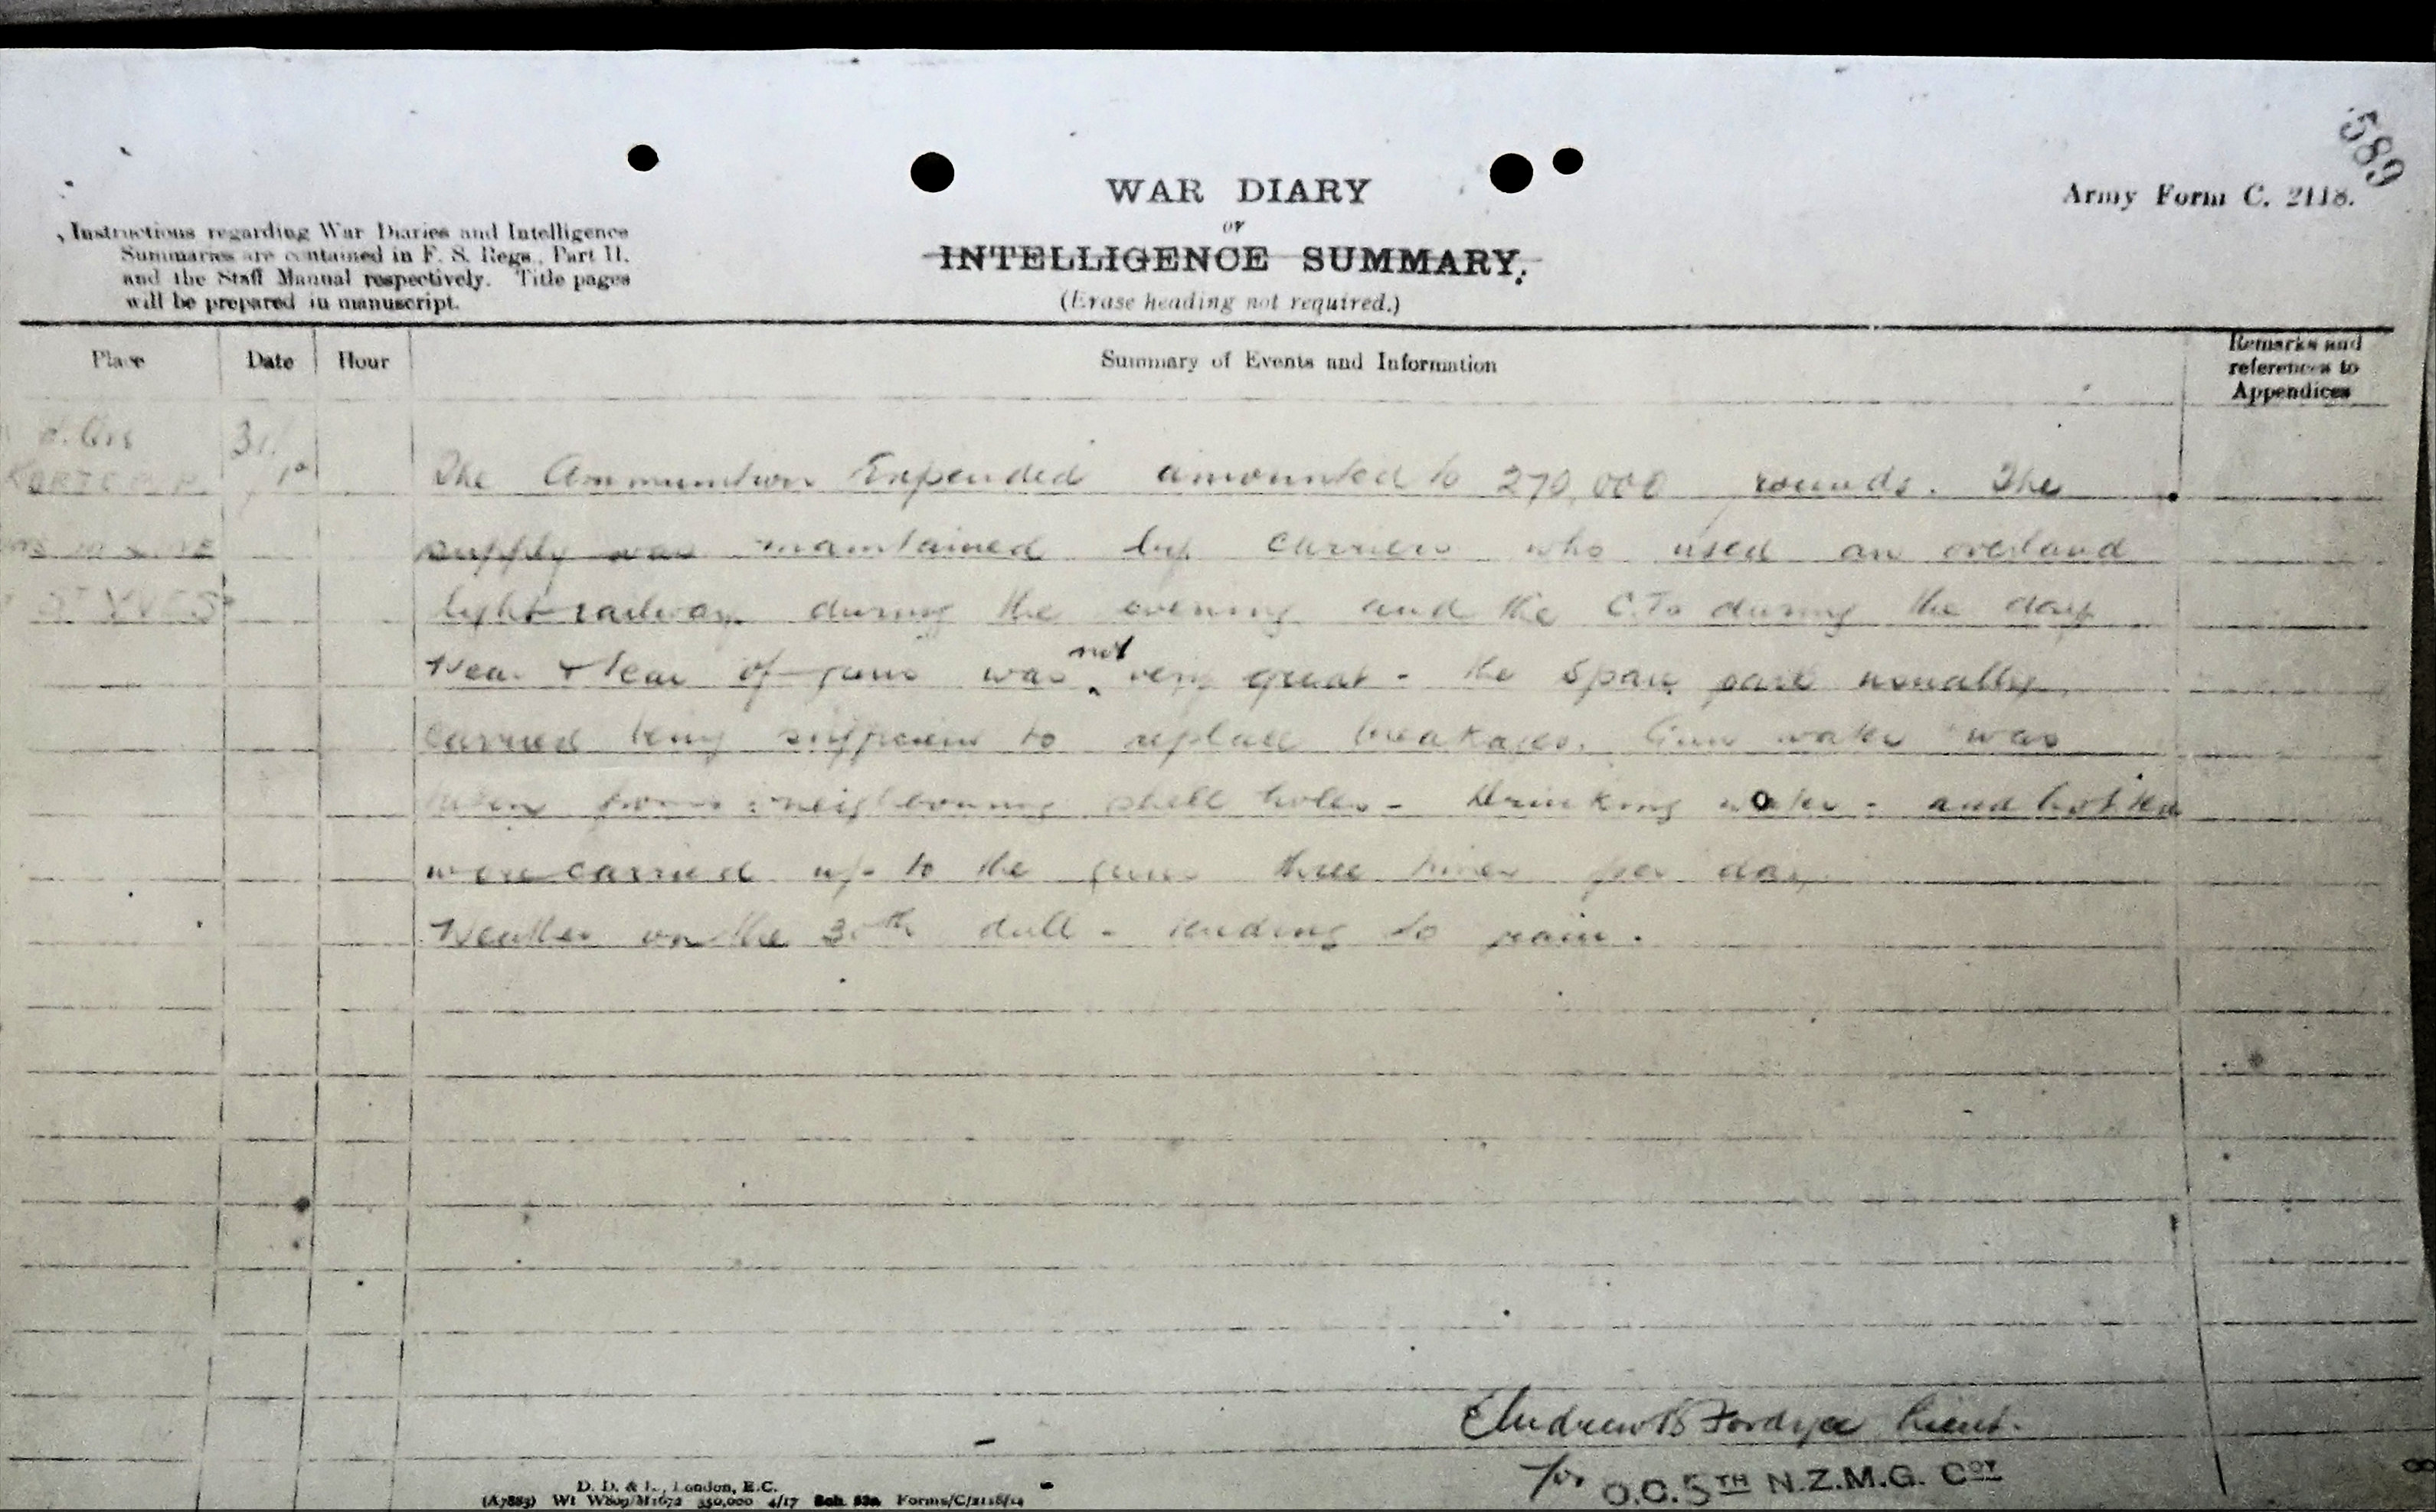 589
Army Form C. 2118.
WAR DIARY
or
INTELLIGENCE SUMMARY.
(Erase heading not required.)
Instructions regarding War Diaries and Intelligence
Summaries are contained in F. S. Regs., Part II.
and the Staff Manual respectively. Title pages
will be prepared in manuscript.
Place Date Hour Summary of Events and Information Remarks and
references to
Appendices
31
The Ammunition Expended amounted to 270,000 rounds. The
supply was maintained by carriers who used an overland
ST YVES light railway during the evening and the C.Ts during the day
Wear & tear of guns was not very great - the spare parts usually
carried being sufficient to replace breakages. Gun water was
taken from neighbouring shell holes - Drinking water - and hot tea
were carried up to the guns three times per day.
Weather on the 30th dull - tending to rain.
Andrew B Fordyce Lieut.
for O.C. 5TH N.Z.M.G. COY
D. D. & L., London, E.C.
(A7883) Wt W809/M1672 350,000 4/17 Sch. 52a Forms/C/2118/14